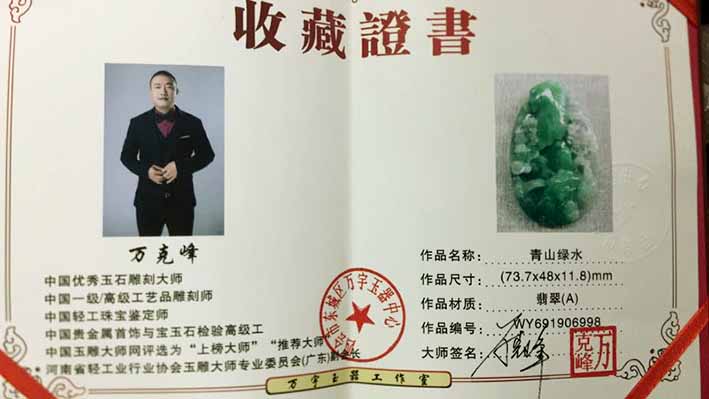 收藏證書
万克峰
中国优秀玉石雕刻大师
中国一级/高级工艺品雕刻师
中国轻工珠宝鉴定师
中国贵金属首饰与宝玉石检验高级工
中国玉雕大师网评选为“上榜大师”“推荐大师”
河南省轻工业行业协会玉雕大师专业委员会(广东)副会长
作品名称: 青山绿水
作品尺寸: (73.7x48x11.8)mm
作品材质: 翡翠(A)
作品编号: WY691906998
大师签名:
万克峰
市东城区万宇玉器中心
万宇玉器工作室